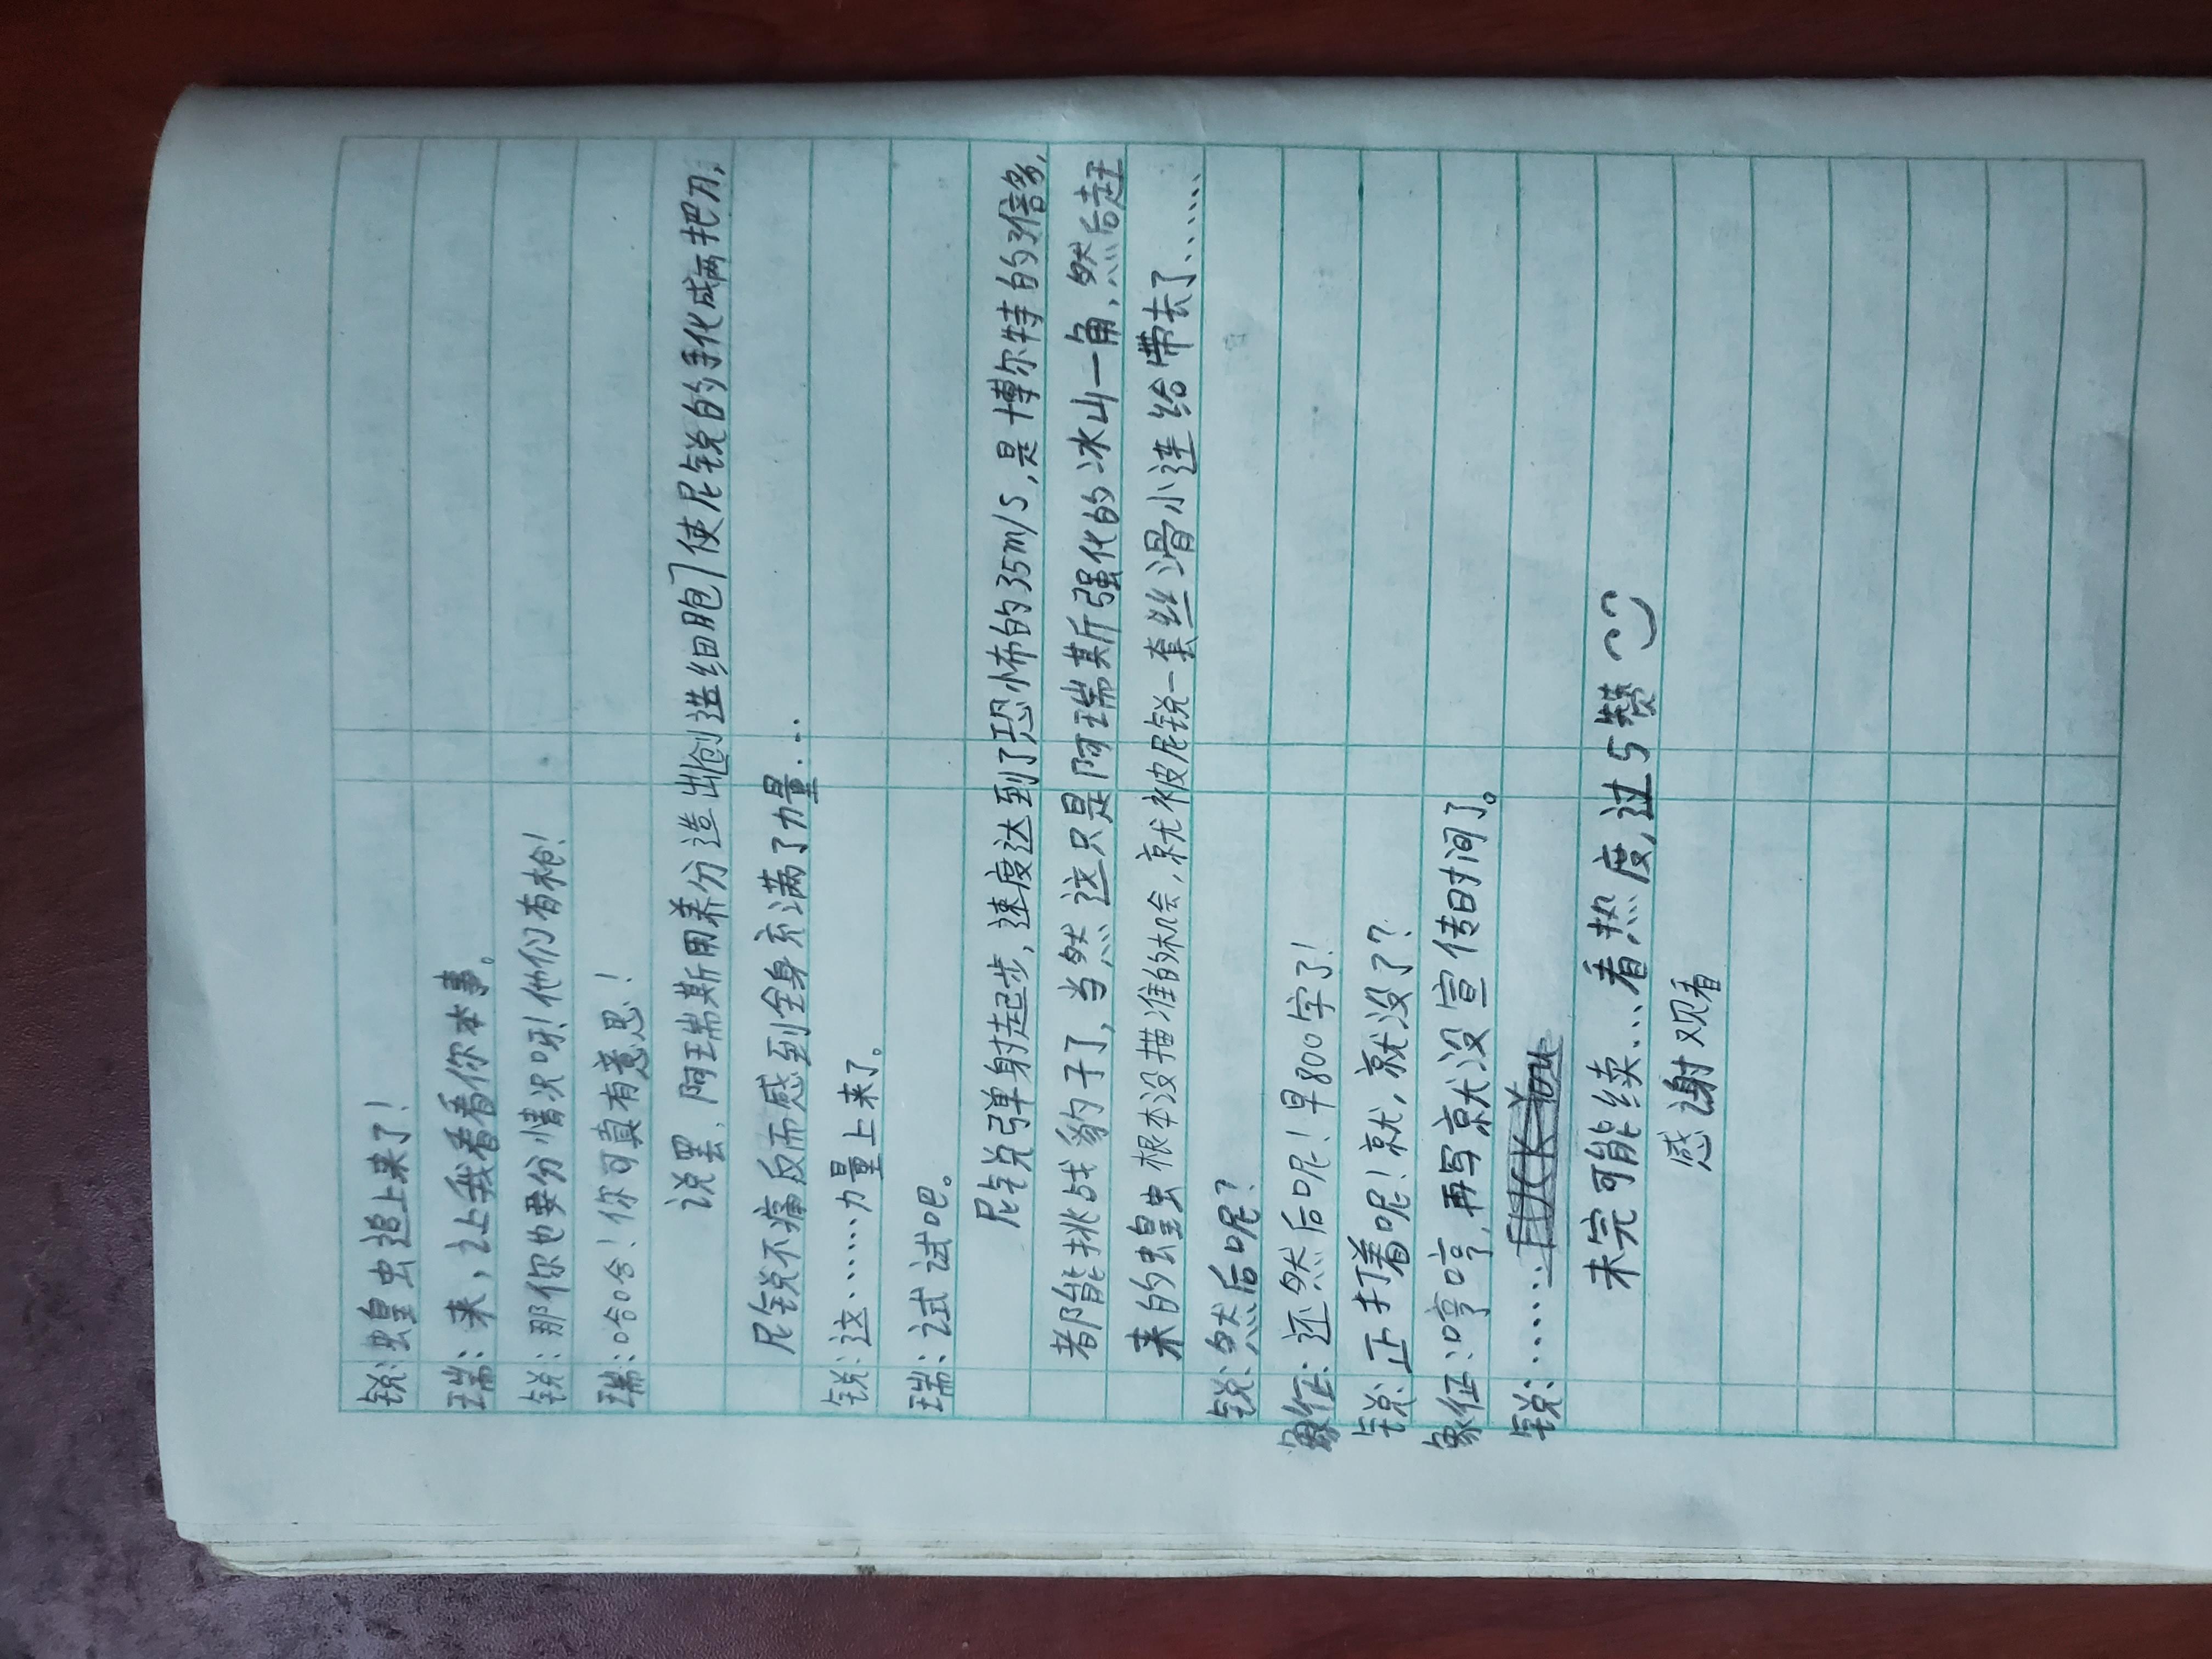 锐:蝗虫追上来了!
瑞:来,让我看看你本事。
锐:那你也要分情况呀!他们有枪!
瑞:哈哈!你可真有意思!
说罢,阿瑞斯用养分造出[创造细胞]使尼锐的手化成两把刀,
尼锐不痛反而感到全身充满了力量...
锐:这......力量上来了。
瑞:试试吧。
尼锐弹射起步,速度达到了恐怖的35m/s,是博尔特的3倍多,
都能挑战豹子了,当然这只是阿瑞斯强化的冰山一角,然后赶
来的蝗虫根本没描准的机会,就被尼锐一套丝滑小连给带去了......
锐:然后呢?
象征:还然后呢!早800字了!
锐:正打着呢!就,就没了??
象征:哼哼,再写就没宣传时间了。
锐:......FUCK You
未完可能续...看热度,过5赞
感谢观看